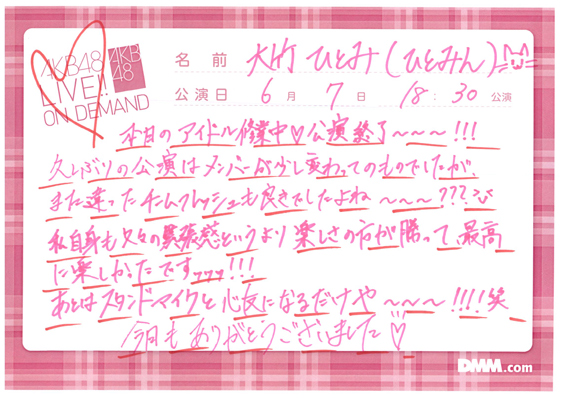 AKB48
LIVE!!
ON DEMAND
AKB
48
名前 大竹 ひとみ(ひとみん)
公演日 6月 7日 18:30 公演
本日のアイドル修業中♡公演終了〜〜〜!!!
久しぶりの公演はメンバーが少し変わってのものでしたが、
また違ったチームフレッシュも良きでしたよね〜〜〜???
私自身も久々の緊張感というより楽しさの方が勝って、最高
に楽しかったですッッッ!!!
あとはスタンドマイクと心友になるだけや〜〜〜!!!!笑
今日もありがとうございました♡
DMM.com